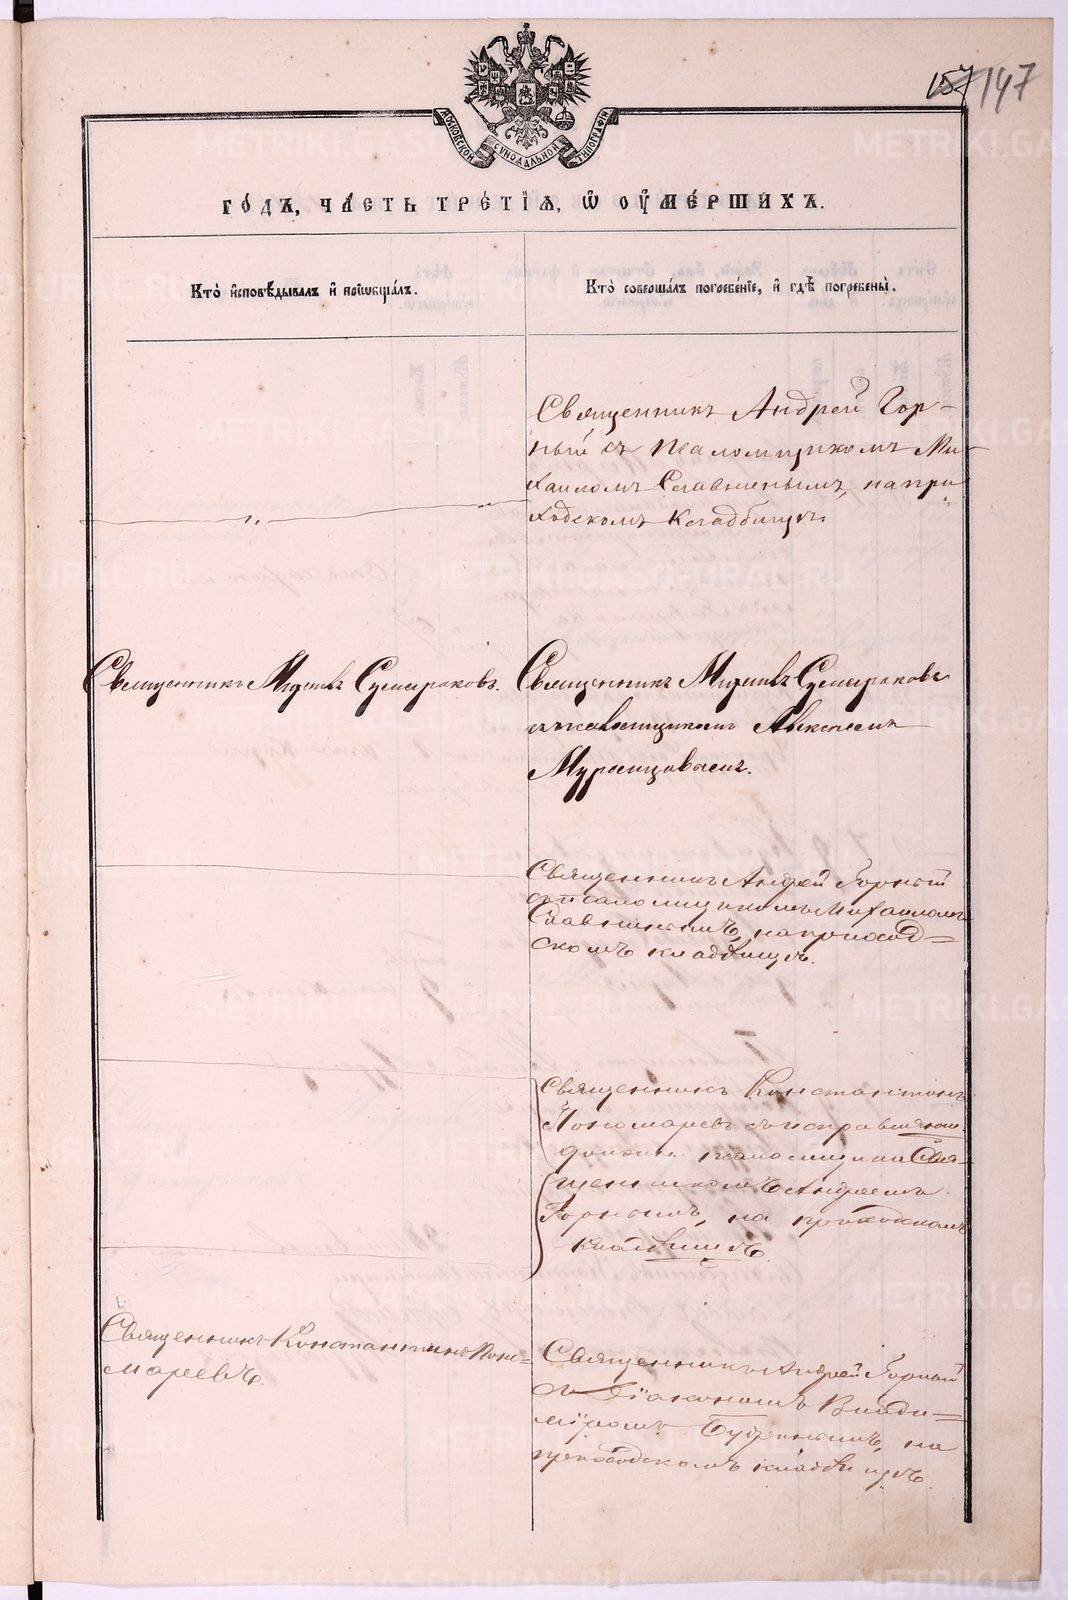 157 147
МОСКОВСКОЙ СѴНОДАЛЬНОЙ ТИПОГРАФІИ
ГО́ДЪ, ЧА́СТЬ ТРЕ́ТІѦ, Ѡ҆ ОУ҆МЕ́РШИХЪ.
Кто̀ и҆сповѣ́дывалъ и҆ прїѡбща́лъ.
Кто̀ соверша́лъ погребе́нїе, и҆ гдѣ̀ погребены̀.
Священникъ Андрей Гор-
ный съ псаломщикомъ Ми-
хаиломъ Славнинымъ, на при-
ходскомъ кладбищѣ.
Священникъ Сумароковъ.
Священникъ Сумароковъ
съ псаломщикомъ Алексѣемъ
Муромцовымъ.
Священникъ Андрей Горный
съ псаломщикомъ Михаиломъ
Славнинымъ, на приход=
скомъ кладбищѣ.
Священникъ Константинъ
Пономаревъ съ исправляющ.
должн. псаломщика Свя-
щенникомъ Андреемъ
Горнымъ, на приходскомъ
кладбищѣ.
Священникъ Константинъ Поно=
маревъ.
Священникъ Андрей Горный
съ Діакономъ Влади=
міромъ на
приходскомъ кладбищѣ.
METRIKI.GASO-URAL.RU